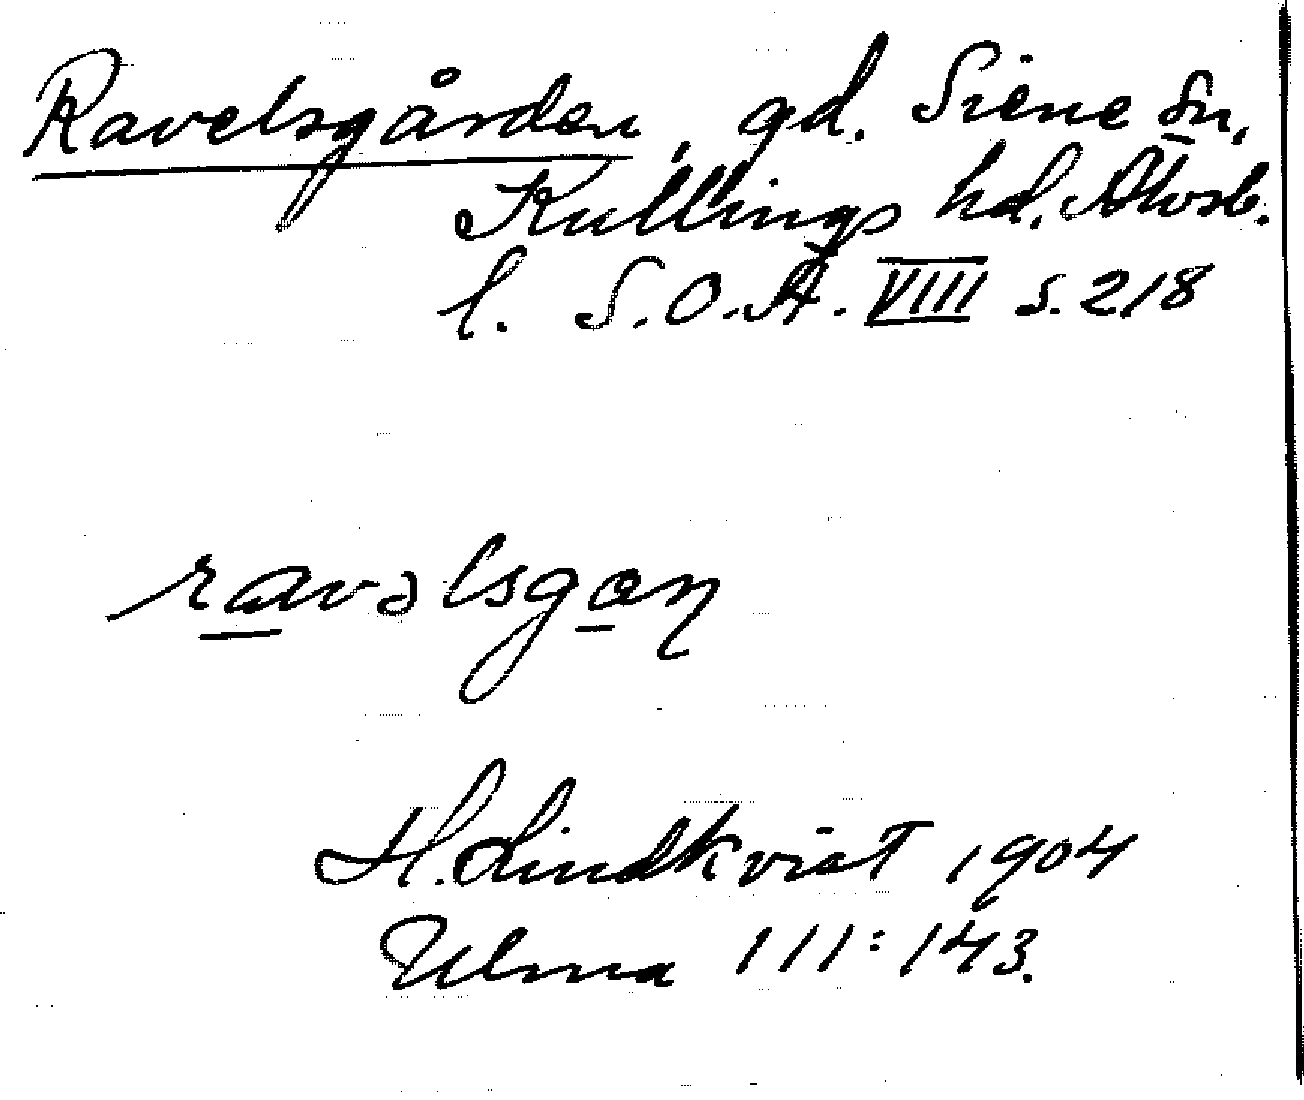 Ravelsgården, gd. Siene sn,
Kullings hd. Älvsb.
l. S.O.Ä. VIII s. 218
ravəlsgɑn
H. Lindkvist 1904
Ulma 111:143.